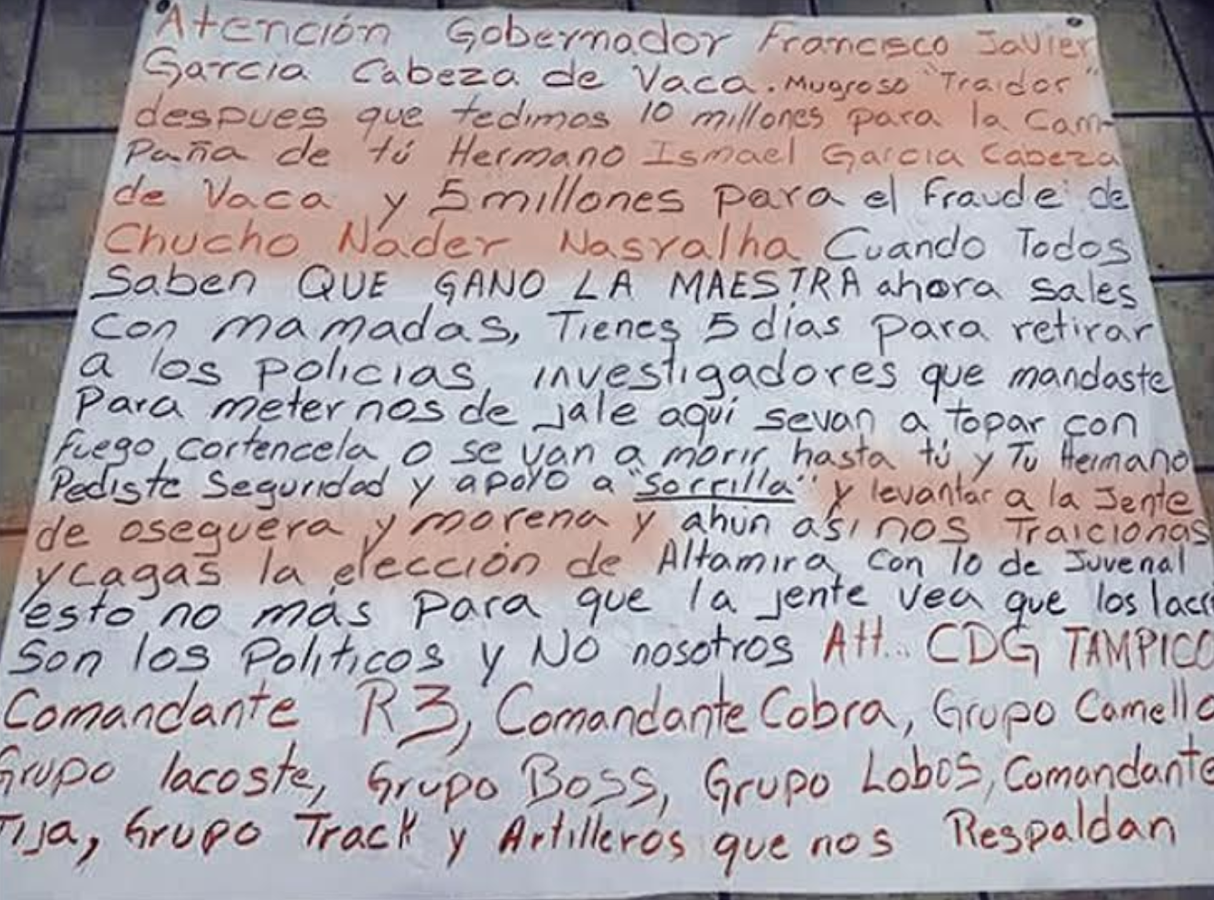 Atención Gobernador Francisco Javier
García Cabeza de Vaca. Mugroso "Traidor"
despues que tedimos 10 millones para la Cam-
Paña de tú Hermano Ismael Garcia Cabeza
de Vaca y 5 millones para el fraude de
Chucho Nader Nasralha Cuando Todos
Saben QUE GANO LA MAESTRA ahora sales
con mamadas, Tienes 5 dias para retirar
a los policias, investigadores que mandaste
Para meternos de jale aquí sevan a topar con
fuego, cortencela o se van a morir hasta tú y Tu Hermano
Pediste Seguridad y apoyo a "Sorrilla" y levantar a la Jente
de oseguera y morena y ahun asi nos Traicionas
y cagas la elección de Altamira con lo de Juvenal
esto no más para que la jente vea que los lacr
Son los Politicos y NO nosotros Att.. CDG TAMPICO
Comandante R3, Comandante Cobra, Grupo Camello
Grupo lacoste, Grupo Boss, Grupo Lobos, Comandante
Tija, Grupo Track y Artilleros que nos Respaldan